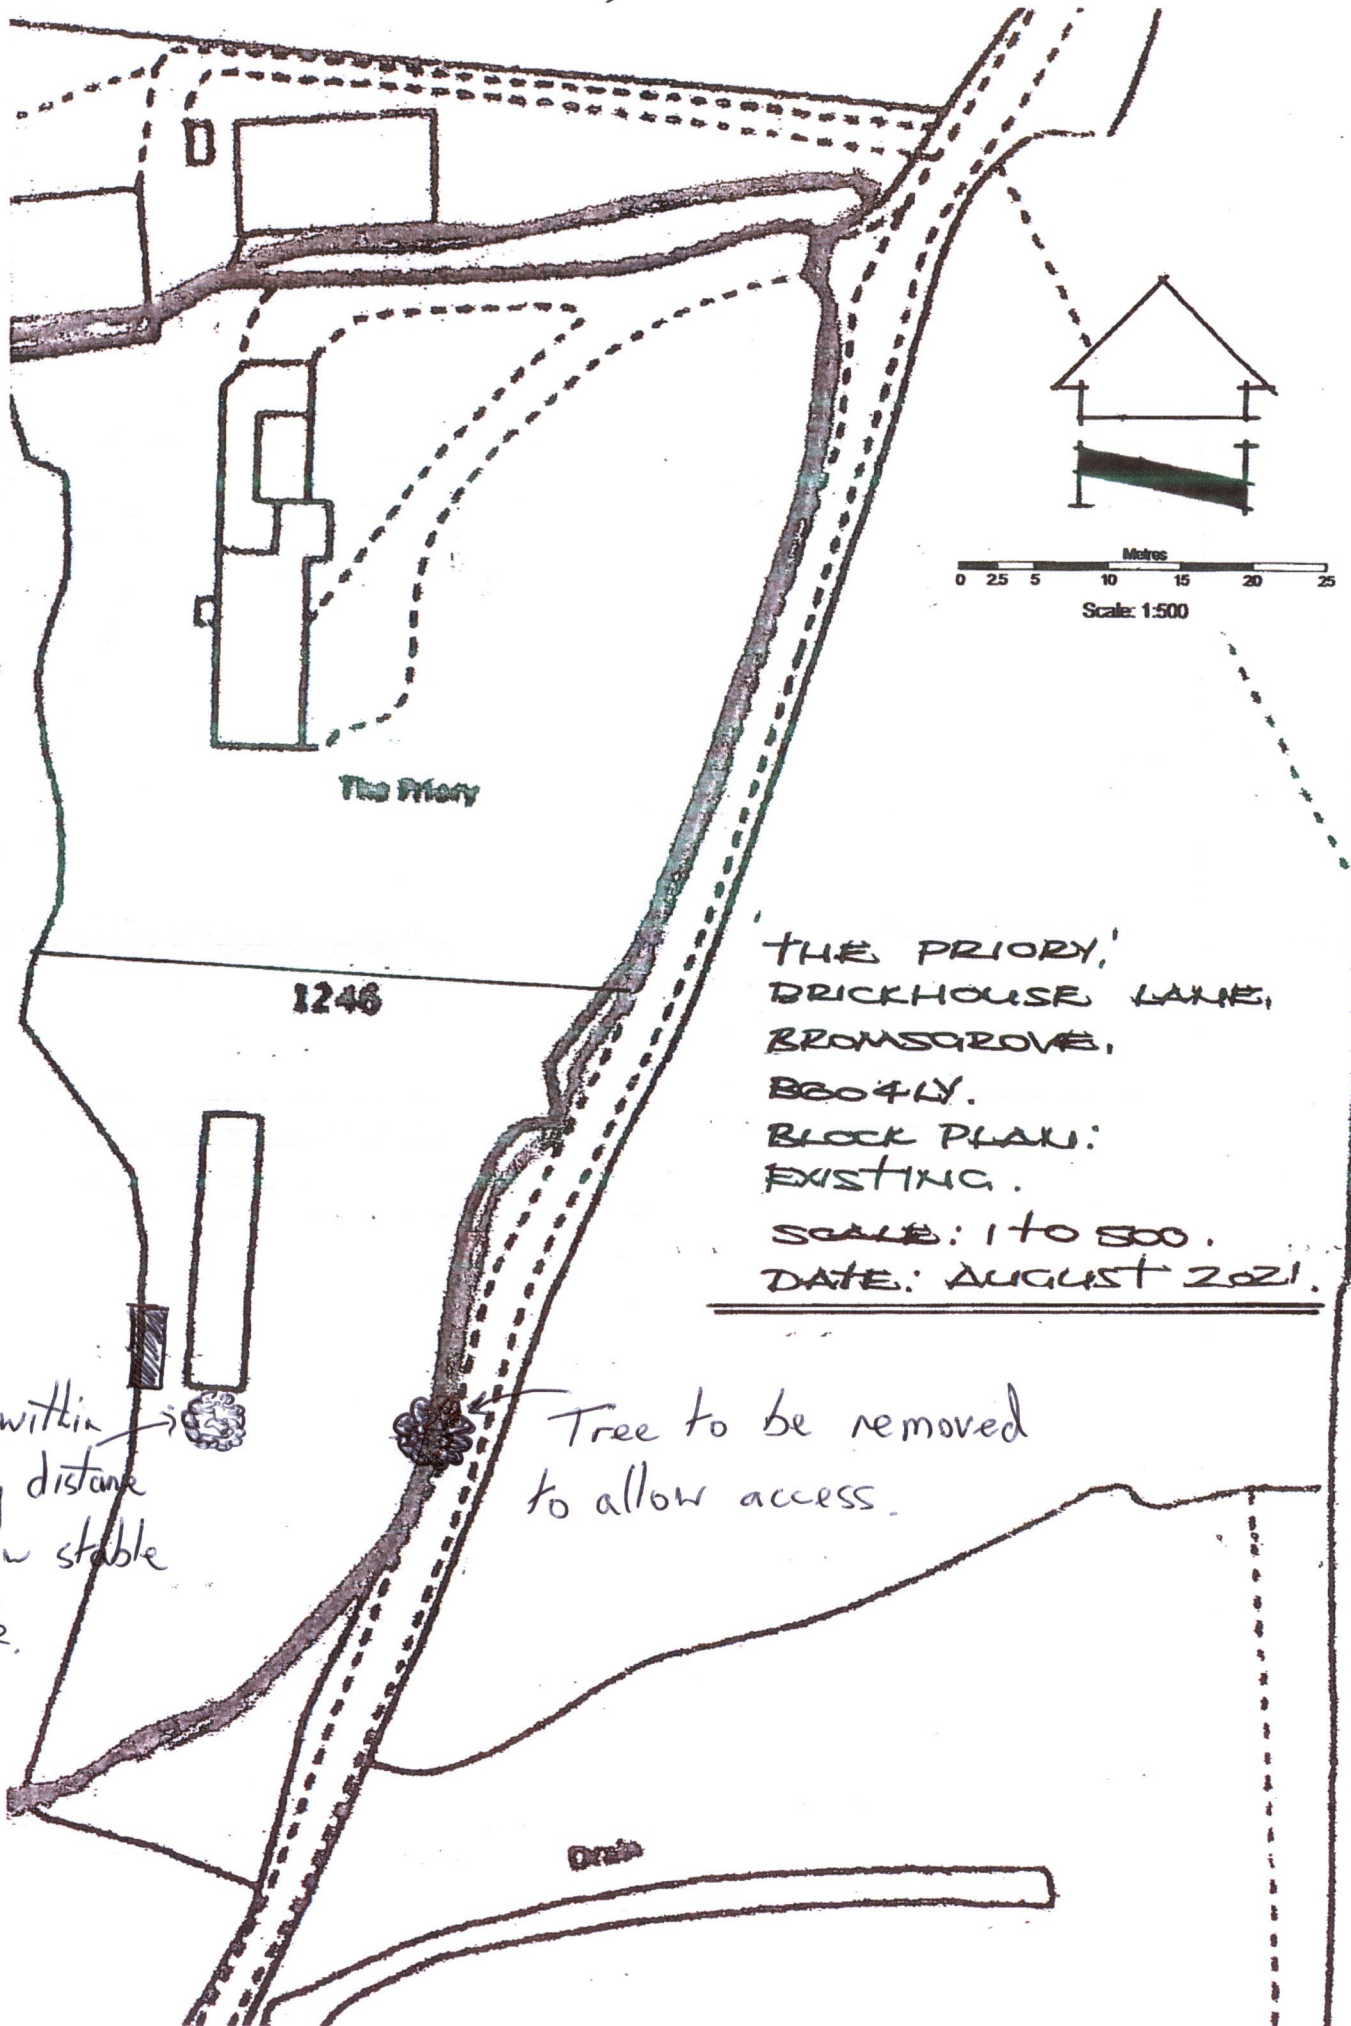 Metres
0 2.5 5 10 15 20 25
Scale: 1:500
The Priory
1246
'THE PRIORY,'
BRICKHOUSE LANE,
BROMSGROVE,
B60 4LY.
BLOCK PLAN:
EXISTING.
SCALE: 1 TO 500.
DATE: AUGUST 2021.
within
distance
stable
Tree to be removed
to allow access.
Drain